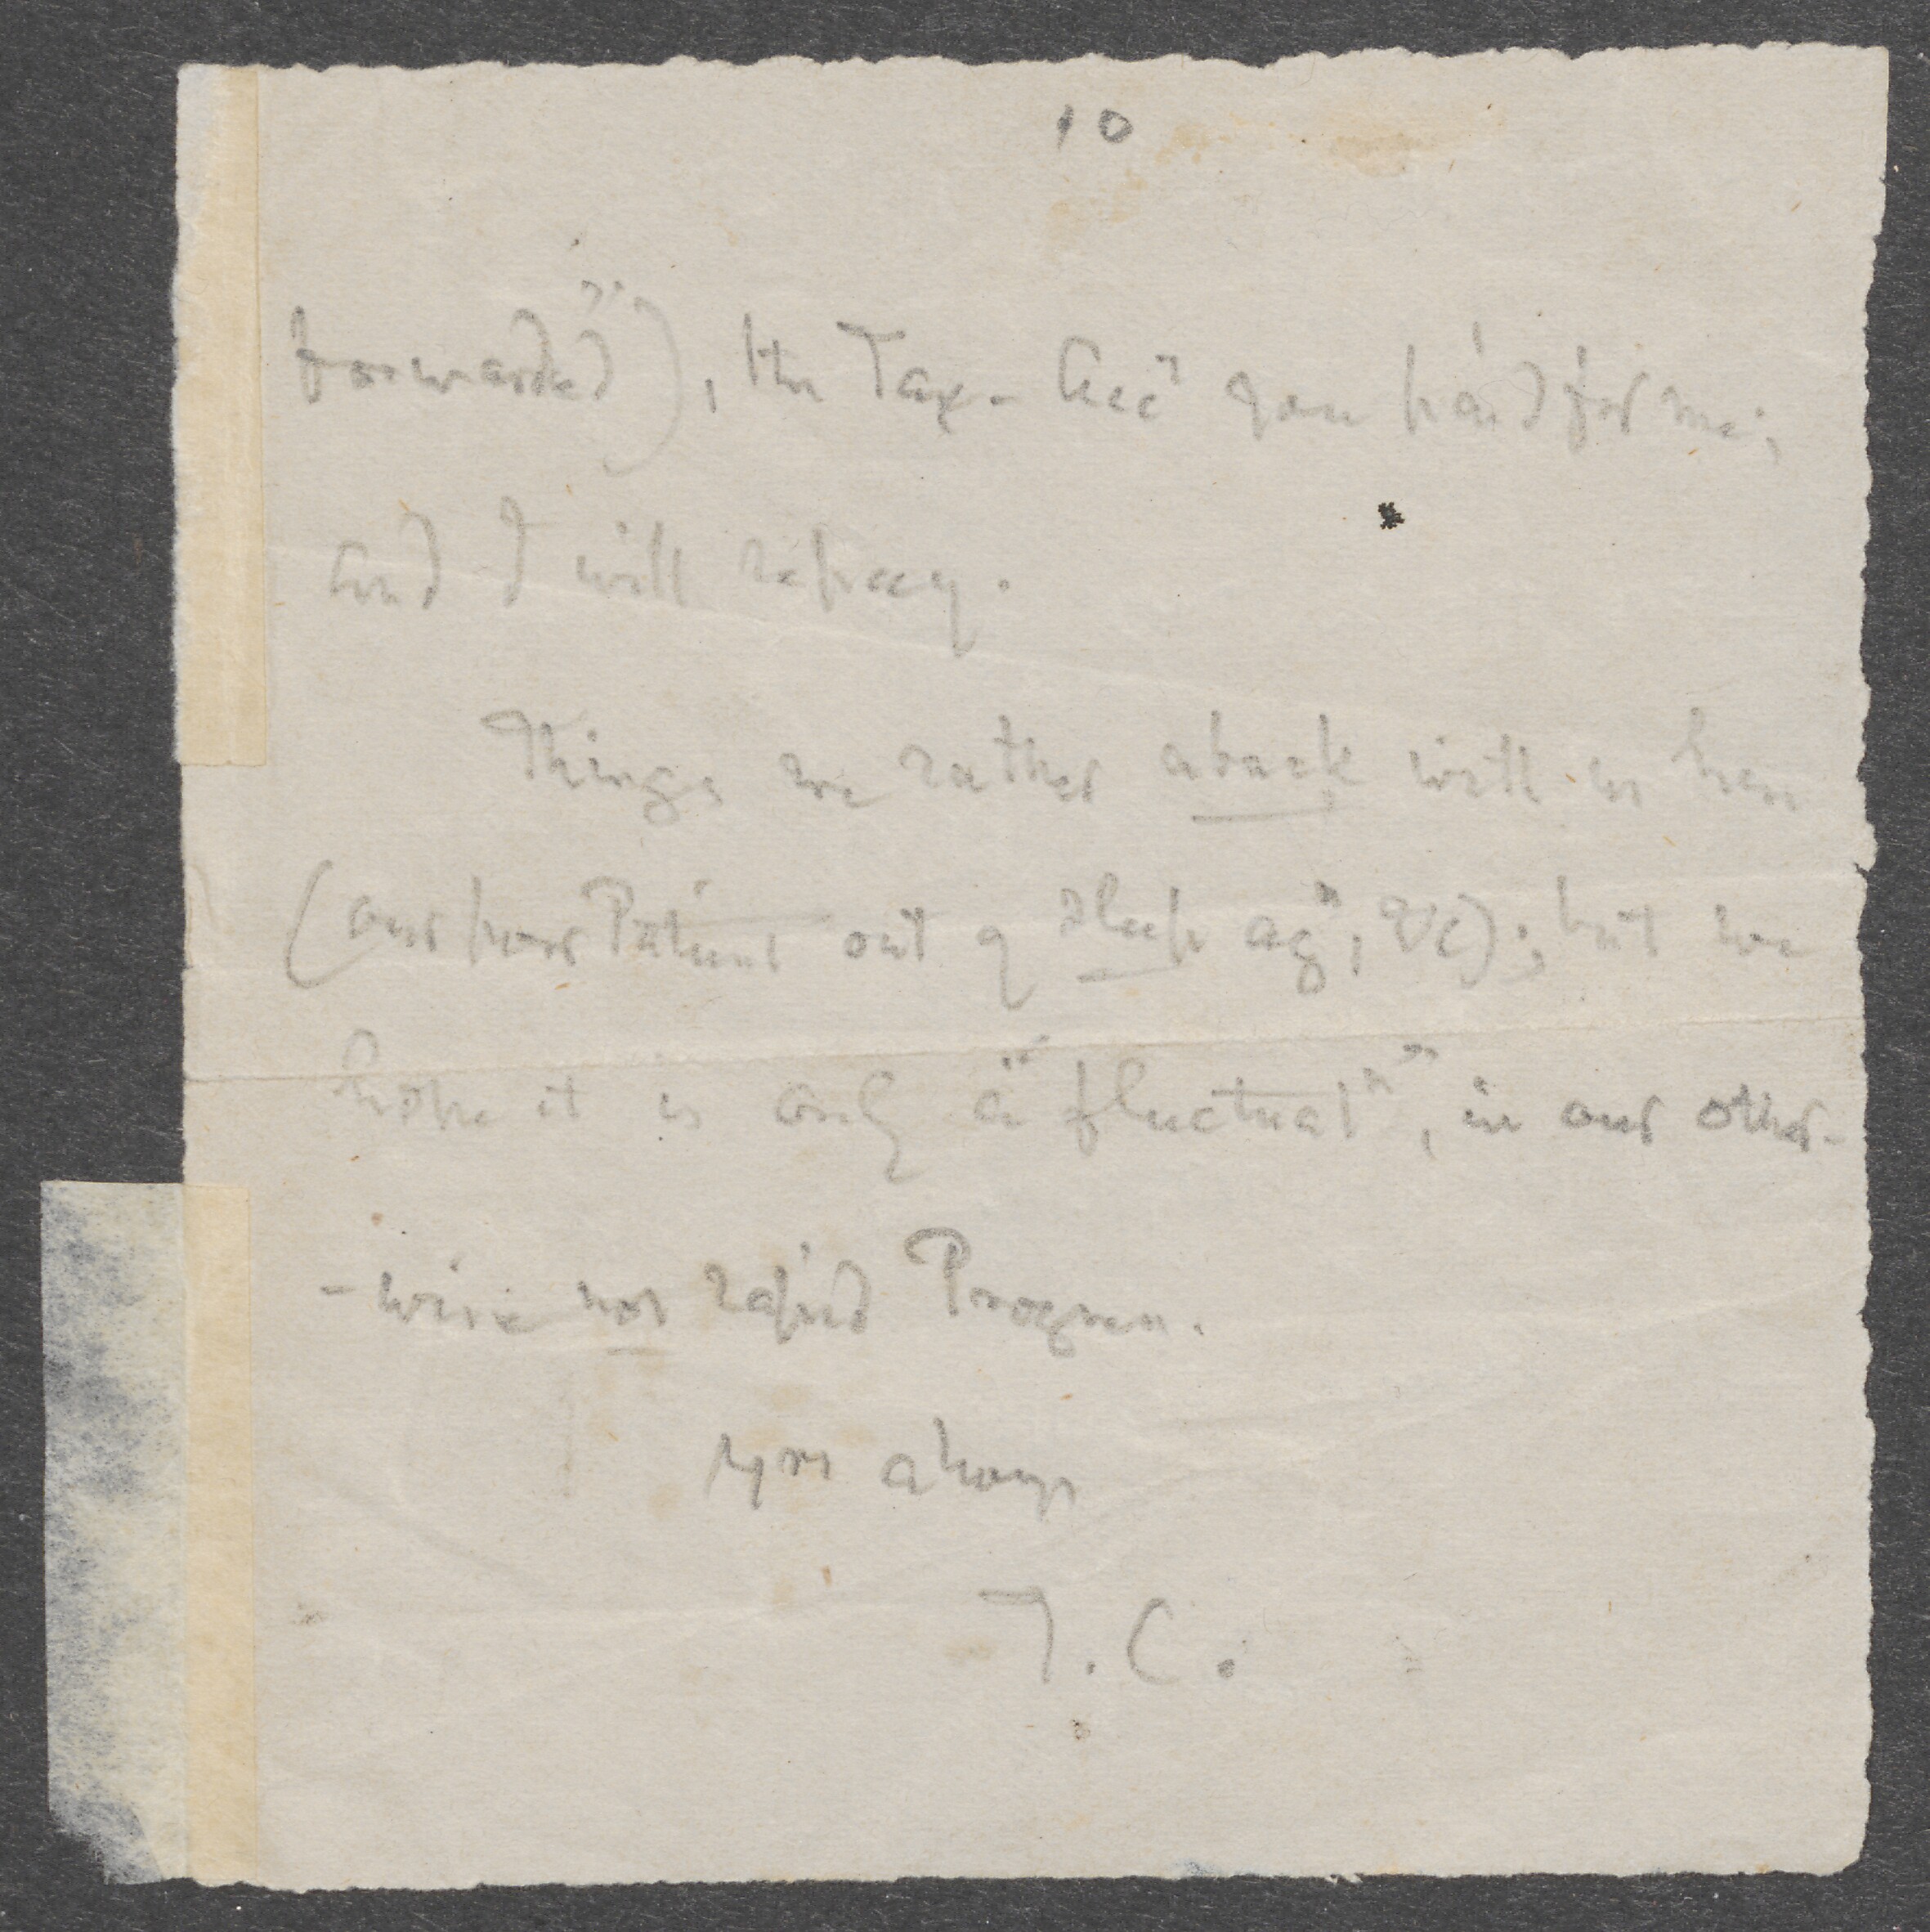 10
forwarded"), the Tax-Acct you paid for me;
and I will repay.
Things are rather aback with us here
(our poor Patient out of sleep agn, &c); but we
hope it is only a "fluctuatn", in our other-
-wise not rapid Progress.
Yrs always
T.C.